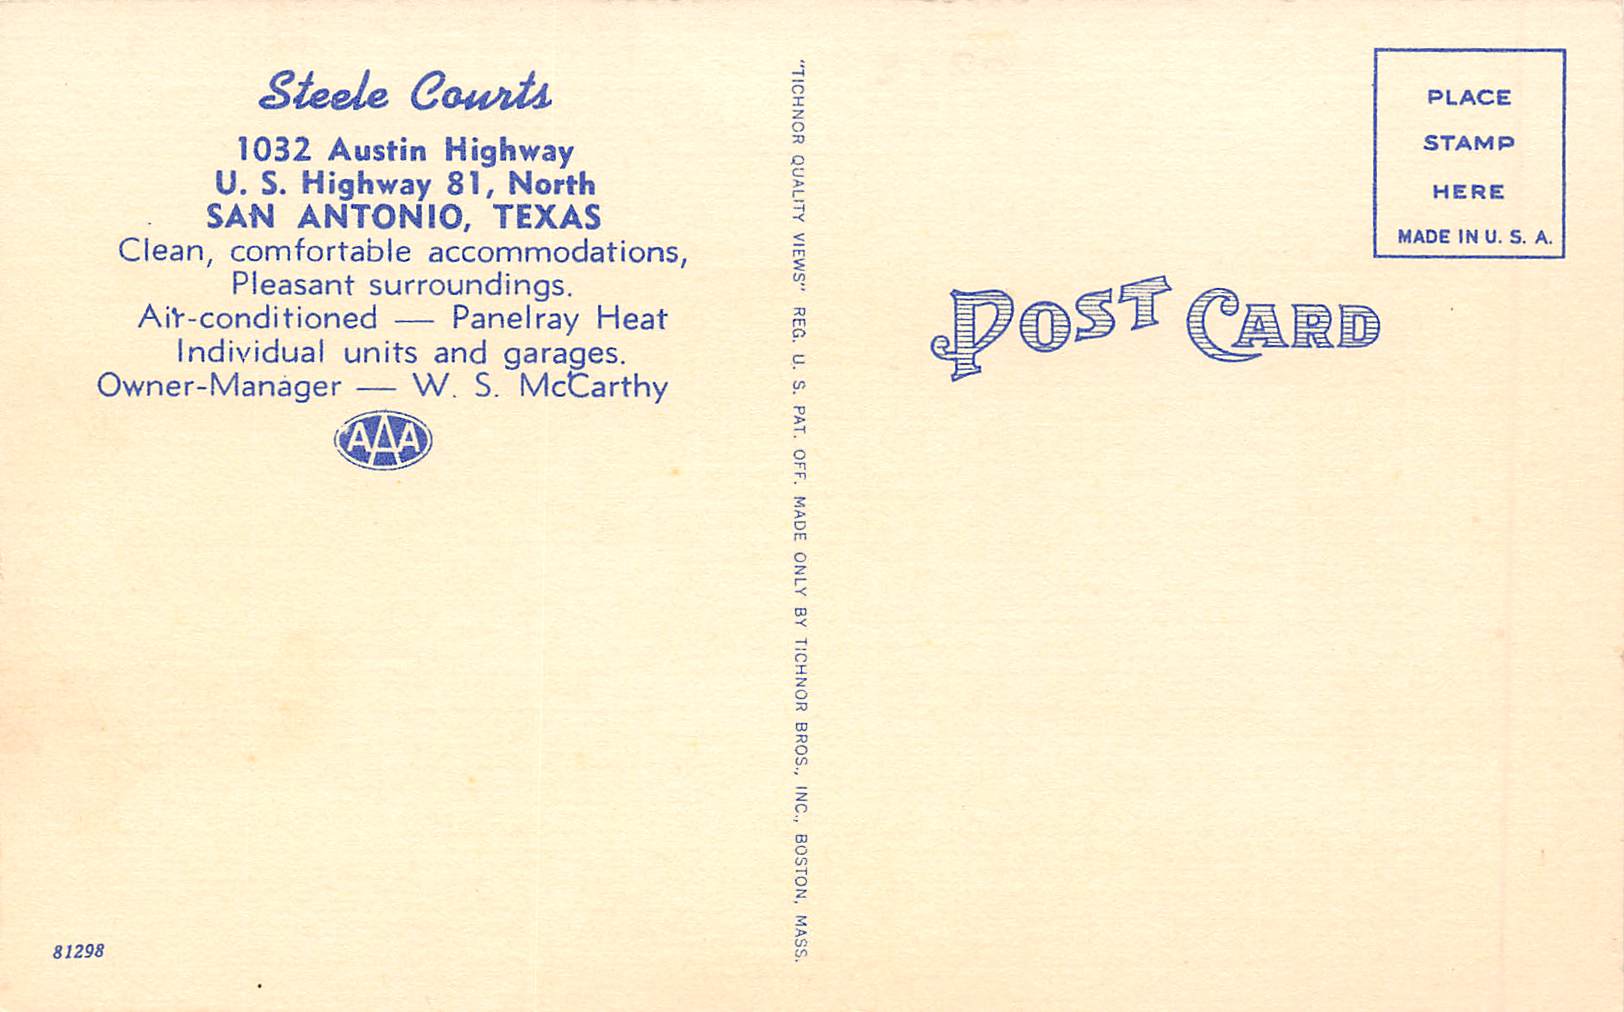 Steele Courts
1032 Austin Highway
U. S. Highway 81, North
SAN ANTONIO, TEXAS
Clean, comfortable accommodations,
Pleasant surroundings.
Air-conditioned — Panelray Heat
Individual units and garages.
Owner-Manager — W. S. McCarthy
AAA
81298
"TICHNOR QUALITY VIEWS" REG. U. S. PAT. OFF. MADE ONLY BY TICHNOR BROS., INC., BOSTON, MASS.
POST CARD
PLACE
STAMP
HERE
MADE IN U. S. A.